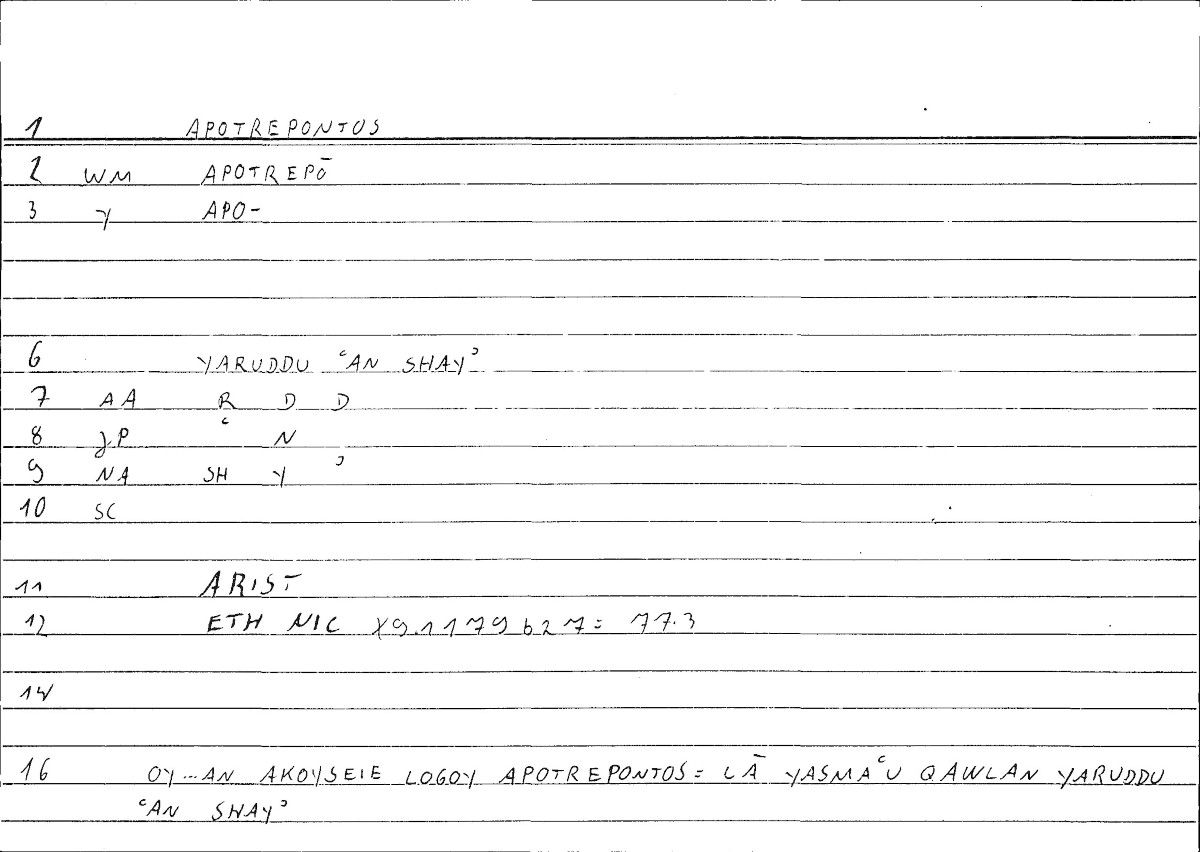 1 APOTREPONTOS
2 WM APOTREPŌ
3 γ APO-
6 YARUDDU ʿAN SHAYʾ
7 AA R D D
8 JP ʿ N
9 NA SH Y ʾ
10 SC
11 ARIST
12 ETH NIC X9.1179b27= 77.3
14
16 OY...AN AKOYSEIE LOGOY APOTREPONTOS= LĀ YASMAʿU QAWLAN YARUDDU
ʿAN SHAYʾ